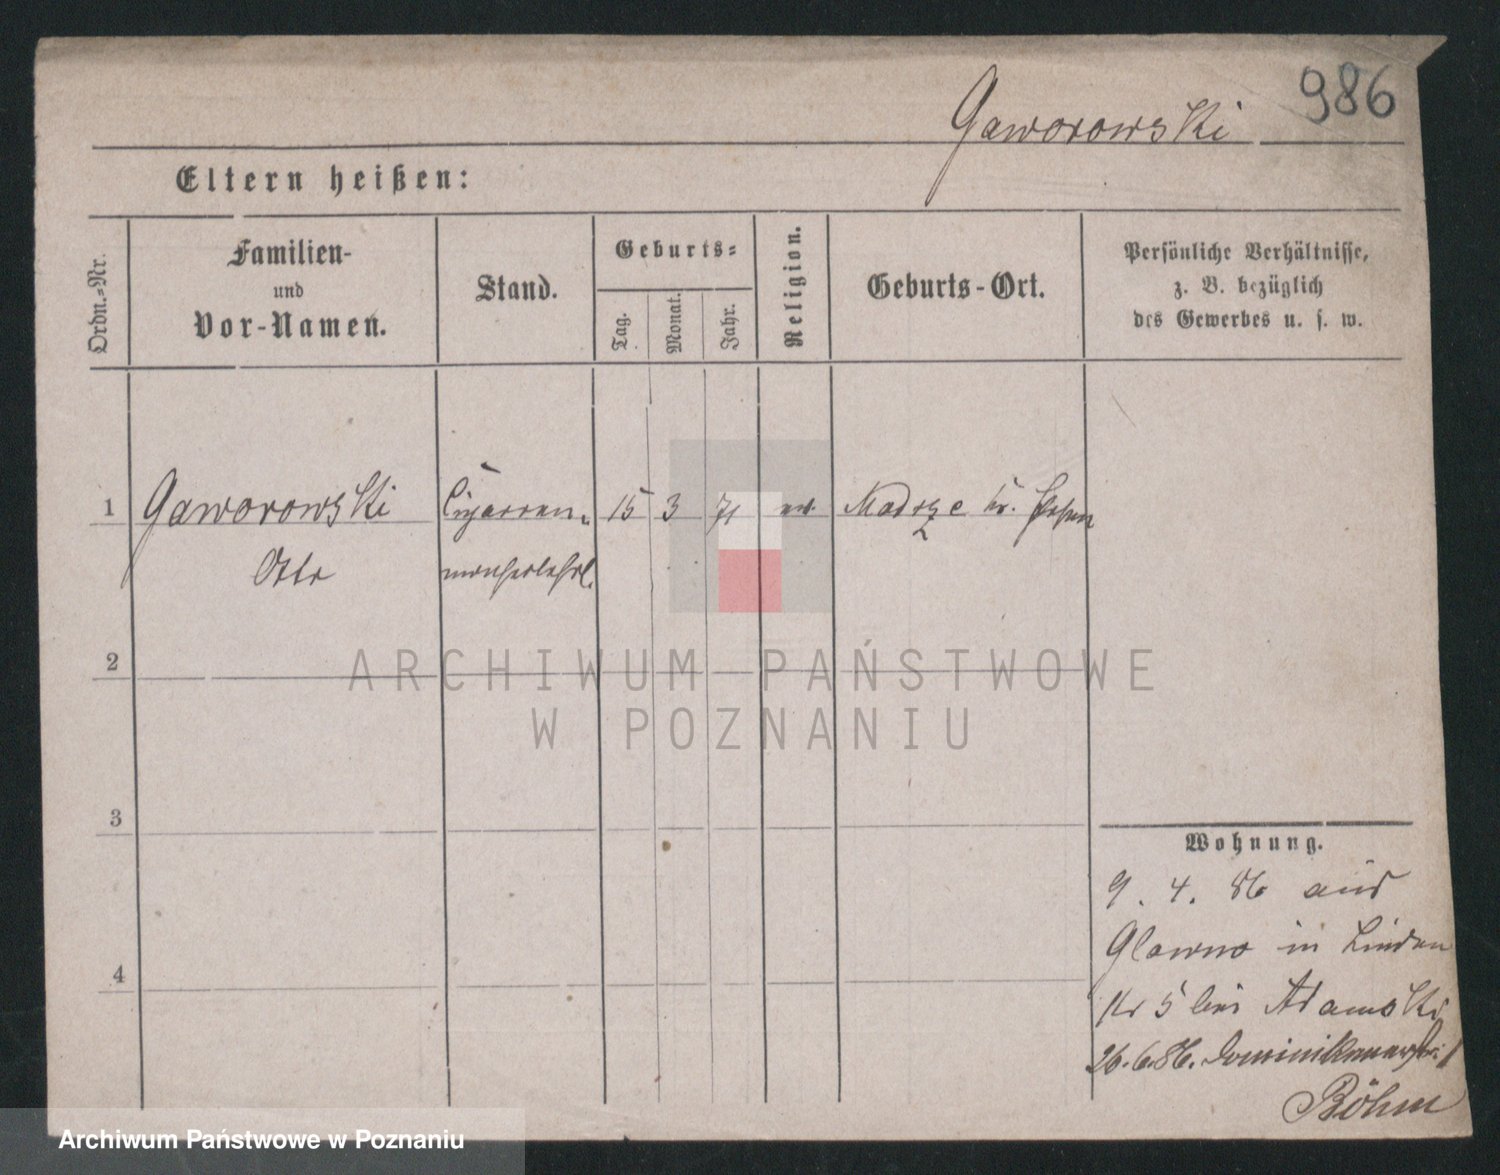 986
Gaworowski
Eltern heißen:
Ordn.=Nr.
Familien-
und
Vor-Namen.
Stand.
Geburts=
Tag.
Monat.
Jahr.
Religion.
Geburts-Ort.
Persönliche Verhältnisse,
z. B. bezüglich
des Gewerbes u. s. w.
1 Gaworowski Cigarren- 15 3 71 Madrze Kr. Posen
Otto
2
3
4
ARCHIWUM PAŃSTWOWE
W POZNANIU
Wohnung.
9. 4. 86 aus
Glowno in Linden
5 bei Adamski
26.6.86. Dominikanerstr. 1
Böhm
Archiwum Państwowe w Poznaniu